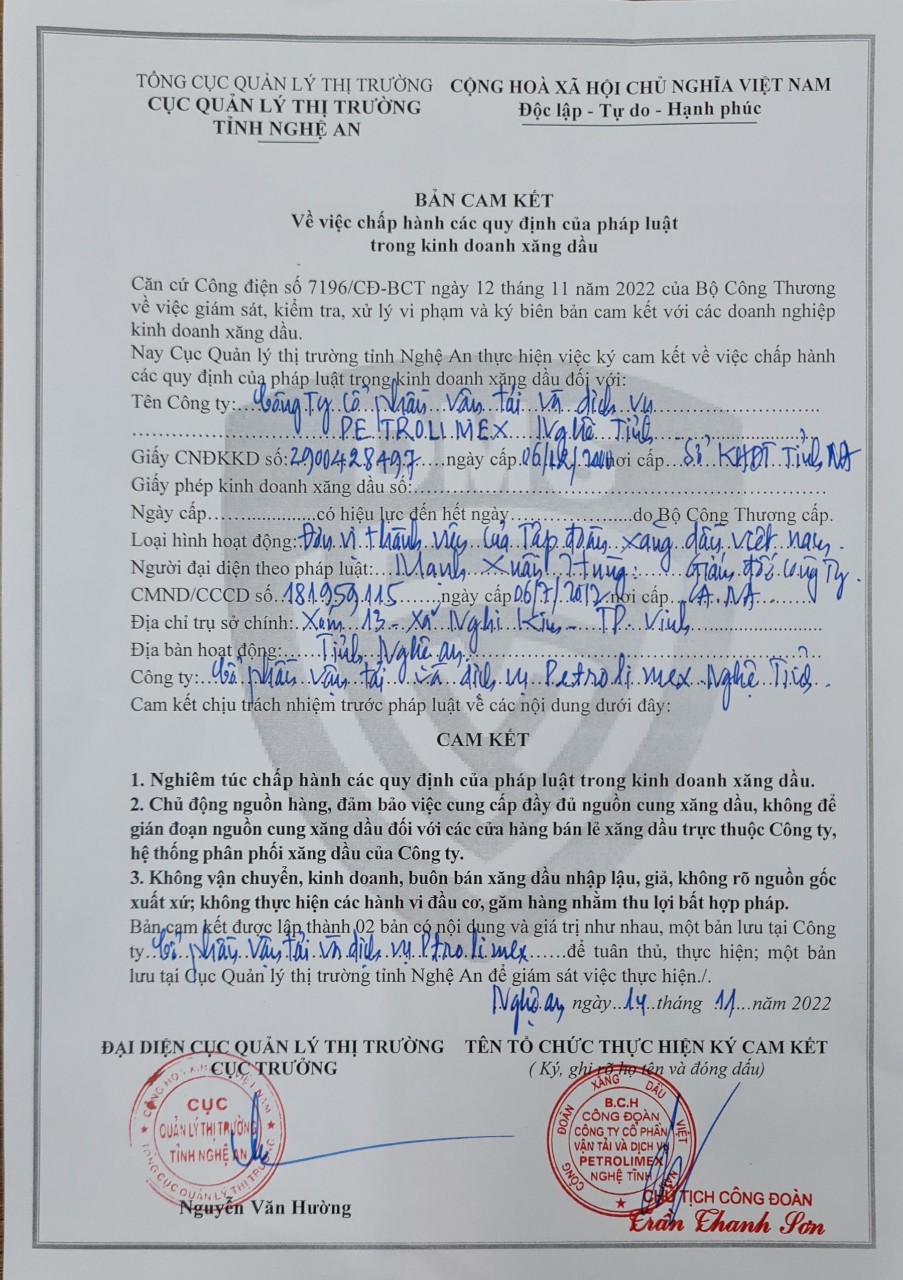 TỔNG CỤC QUẢN LÝ THỊ TRƯỜNG
CỤC QUẢN LÝ THỊ TRƯỜNG
TỈNH NGHỆ AN
CỘNG HOÀ XÃ HỘI CHỦ NGHĨA VIỆT NAM
Độc lập - Tự do - Hạnh phúc
BẢN CAM KẾT
Về việc chấp hành các quy định của pháp luật
trong kinh doanh xăng dầu
Căn cứ Công điện số 7196/CĐ-BCT ngày 12 tháng 11 năm 2022 của Bộ Công Thương
về việc giám sát, kiểm tra, xử lý vi phạm và ký biên bản cam kết với các doanh nghiệp
kinh doanh xăng dầu.
Nay Cục Quản lý thị trường tỉnh Nghệ An thực hiện việc ký cam kết về việc chấp hành
các quy định của pháp luật trong kinh doanh xăng dầu đối với:
Tên Công ty: Công Ty Cổ phần vận tải và dịch vụ
PETROLIMEX Nghệ Tĩnh
Giấy CNĐKKD số: 2900428497 ngày cấp 06/12/2000 nơi cấp Sở KHĐT Tỉnh NA
Giấy phép kinh doanh xăng dầu số:
Ngày cấp có hiệu lực đến hết ngày do Bộ Công Thương cấp.
Loại hình hoạt động: Đơn vị thành viên của Tập đoàn xăng dầu việt nam.
Người đại diện theo pháp luật: Mạnh Xuân Hùng: Giám đốc Công Ty.
CMND/CCCD số 181959115 ngày cấp 06/7/2012 nơi cấp CA. NA
Địa chỉ trụ sở chính: Xóm 13 - Xã Nghi Kim - TP Vinh
Địa bàn hoạt động: Tỉnh Nghệ an
Công ty: Cổ phần vận tải và dịch vụ Petrolimex Nghệ Tĩnh.
Cam kết chịu trách nhiệm trước pháp luật về các nội dung dưới đây:
CAM KẾT
1. Nghiêm túc chấp hành các quy định của pháp luật trong kinh doanh xăng dầu.
2. Chủ động nguồn hàng, đảm bảo việc cung cấp đầy đủ nguồn cung xăng dầu, không để
gián đoạn nguồn cung xăng dầu đối với các cửa hàng bán lẻ xăng dầu trực thuộc Công ty,
hệ thống phân phối xăng dầu của Công ty.
3. Không vận chuyển, kinh doanh, buôn bán xăng dầu nhập lậu, giả, không rõ nguồn gốc
xuất xứ; không thực hiện các hành vi đầu cơ, găm hàng nhằm thu lợi bất hợp pháp.
Bản cam kết được lập thành 02 bản có nội dung và giá trị như nhau, một bản lưu tại Công
ty Cổ phần vận tải và dịch vụ Ptrolimex để tuân thủ, thực hiện; một bản
lưu tại Cục Quản lý thị trường tỉnh Nghệ An để giám sát việc thực hiện./.
Nghệ an ngày 14 tháng 11 năm 2022
ĐẠI DIỆN CỤC QUẢN LÝ THỊ TRƯỜNG
CỤC TRƯỞNG
CỤC
QUẢN LÝ THỊ TRƯỜNG
TỈNH NGHỆ AN
TỔNG CỤC QUẢN LÝ THỊ TRƯỜNG
Nguyễn Văn Hường
TÊN TỔ CHỨC THỰC HIỆN KÝ CAM KẾT
( Ký, ghi rõ họ tên và đóng dấu)
CÔNG ĐOÀN XĂNG DẦU VIỆT NAM
B.C.H
CÔNG ĐOÀN
CÔNG TY CỔ PHẦN
VẬN TẢI VÀ DỊCH VỤ
PETROLIMEX
NGHỆ TĨNH
CHỦ TỊCH CÔNG ĐOÀN
Trần Thanh Sơn